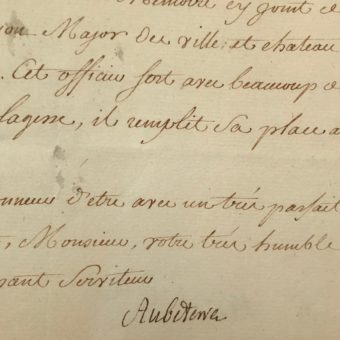 Mémoire cy joint de
on Major des ville et chateau
. Cet officier sert avec beaucoup de
lagesse, il remplit sa place a
nneur d'etre avec un trés parfait
, Monsieur, votre trés humble
sant Serviteur
Aubeterre